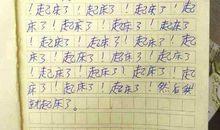 ！起床了！起床了！起床了！起
床了！起床了！起床了！起床了
！起床了！起床了！起床了！起床
了！起床了！起床了！起床了！起
床了！起床了！起床了！起床了
！起床了！起床了！起床了！起
床了！起床了！起床了！然后我
就起床了。